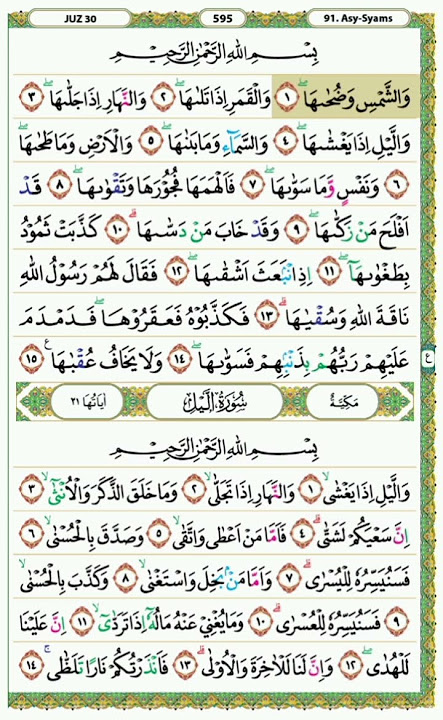 JUZ 30 595 91. Asy-Syams
بِسْمِ اللّٰهِ الرَّحْمٰنِ الرَّحِيْمِ
وَالشَّمْسِ وَضُحٰىهَاۖ ١ وَالْقَمَرِ اِذَا تَلٰىهَاۖ ٢ وَالنَّهَارِ اِذَا جَلّٰىهَاۖ ٣
وَالَّيْلِ اِذَا يَغْشٰىهَاۖ ٤ وَالسَّمَاۤءِ وَمَا بَنٰىهَاۖ ٥ وَالْاَرْضِ وَمَا طَحٰىهَاۖ
٦ وَنَفْسٍ وَّمَا سَوّٰىهَاۖ ٧ فَاَلْهَمَهَا فُجُوْرَهَا وَتَقْوٰىهَاۖ ٨ قَدْ
اَفْلَحَ مَنْ زَكّٰىهَاۖ ٩ وَقَدْ خَابَ مَنْ دَسّٰىهَاۗ ١٠ كَذَّبَتْ ثَمُوْدُ
بِطَغْوٰىهَآۖ ١١ اِذِ انْۢبَعَثَ اَشْقٰىهَاۖ ١٢ فَقَالَ لَهُمْ رَسُوْلُ اللّٰهِ
نَاقَةَ اللّٰهِ وَسُقْيٰهَاۗ ١٣ فَكَذَّبُوْهُ فَعَقَرُوْهَاۖ فَدَمْدَمَ
عَلَيْهِمْ رَبُّهُمْ بِذَنْۢبِهِمْ فَسَوّٰىهَاۖ ١٤ وَلَا يَخَافُ عُقْبٰهَا ࣖ ١٥
مَكِّيَّةٌ سُوْرَةُ الَّيْلِ اٰيَاتُهَا ٢١
بِسْمِ اللّٰهِ الرَّحْمٰنِ الرَّحِيْمِ
وَالَّيْلِ اِذَا يَغْشٰىۙ ١ وَالنَّهَارِ اِذَا تَجَلّٰىۙ ٢ وَمَا خَلَقَ الذَّكَرَ وَالْاُنْثٰىٓۙ ٣
اِنَّ سَعْيَكُمْ لَشَتّٰىۗ ٤ فَاَمَّا مَنْ اَعْطٰى وَاتَّقٰىۙ ٥ وَصَدَّقَ بِالْحُسْنٰىۙ ٦
فَسَنُيَسِّرُهٗ لِلْيُسْرٰىۗ ٧ وَاَمَّا مَنْۢ بَخِلَ وَاسْتَغْنٰىۙ ٨ وَكَذَّبَ بِالْحُسْنٰىۙ
٩ فَسَنُيَسِّرُهٗ لِلْعُسْرٰىۗ ١٠ وَمَا يُغْنِيْ عَنْهُ مَالُهٗٓ اِذَا تَرَدّٰىٓۙ ١١ اِنَّ عَلَيْنَا
لَلْهُدٰىۖ ١٢ وَاِنَّ لَنَا لَلْاٰخِرَةَ وَالْاُوْلٰىۗ ١٣ فَاَنْذَرْتُكُمْ نَارًا تَلَظّٰىۚ ١٤
ع